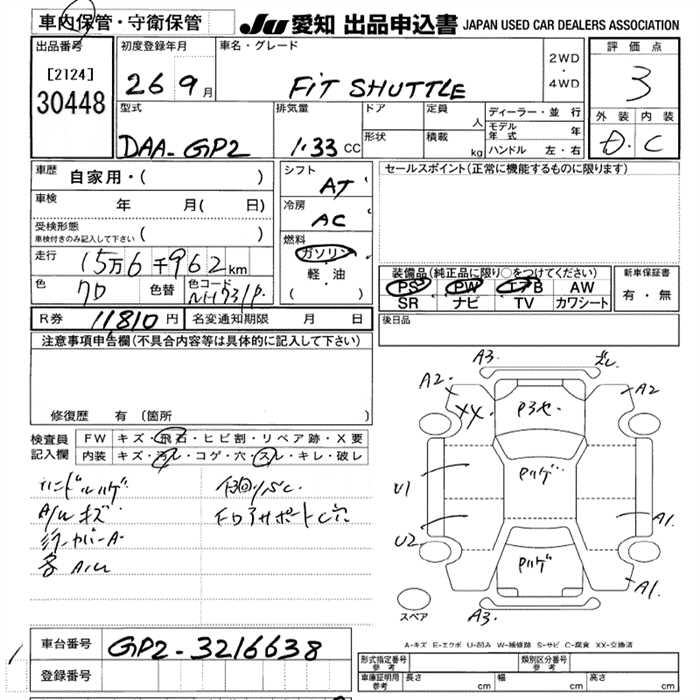 車内保管・守衛保管
JU 愛知 出品申込書 JAPAN USED CAR DEALERS ASSOCIATION
出品番号
[2124]
30448
初度登録年月
26 9月
車名・グレード
FiT SHUTTLE
2WD
・
4WD
評価点
3
外装 内装
D. C
型式
DAA-GP2
排気量
1.33 CC
ドア
形状
定員 人
積載 kg
ディーラー・並行
モデル年式 年
ハンドル 左・右
車歴
自家用・( )
車検
年 月( 日)
受検形態
車検付きのみ記入して下さい ( )
走行
15万6千962km
色
クロ
色替
色コード
NH731P.
シフト
AT
冷房
AC
燃料
ガソリン
・
軽・油
( )
セールスポイント(正常に機能するものに限ります)
装備品(純正品に限り○をつけてください)
PS PW エアB AW
SR ナビ TV カワシート
新車保証書
有・無
R券 11810円
名変通知期限 月 日
後日品
注意事項申告欄(不具合内容等は具体的に記入して下さい)
修復歴 有 (箇所 )
検査員
記入欄
FW キズ・飛石・ヒビ割・リペア跡・X要
内装 キズ・汚レ・コゲ・穴・スレ・キレ・破レ
ハンドルハゲ
A/W キズ
A3
A2
XX
P3ヤ.
A2
Pハゲ
U1
U2
A1.
Pハゲ
A1.
A3.
スペア
A-キズ E-エクボ U-凹み W-補修跡 S-サビ C-腐食 XX-交換済
車台番号
GP2-3216638
登録番号
形式指定番号
参考
類別区分番号
参考
車庫証明用
参考
長さ cm
幅 cm
高さ cm